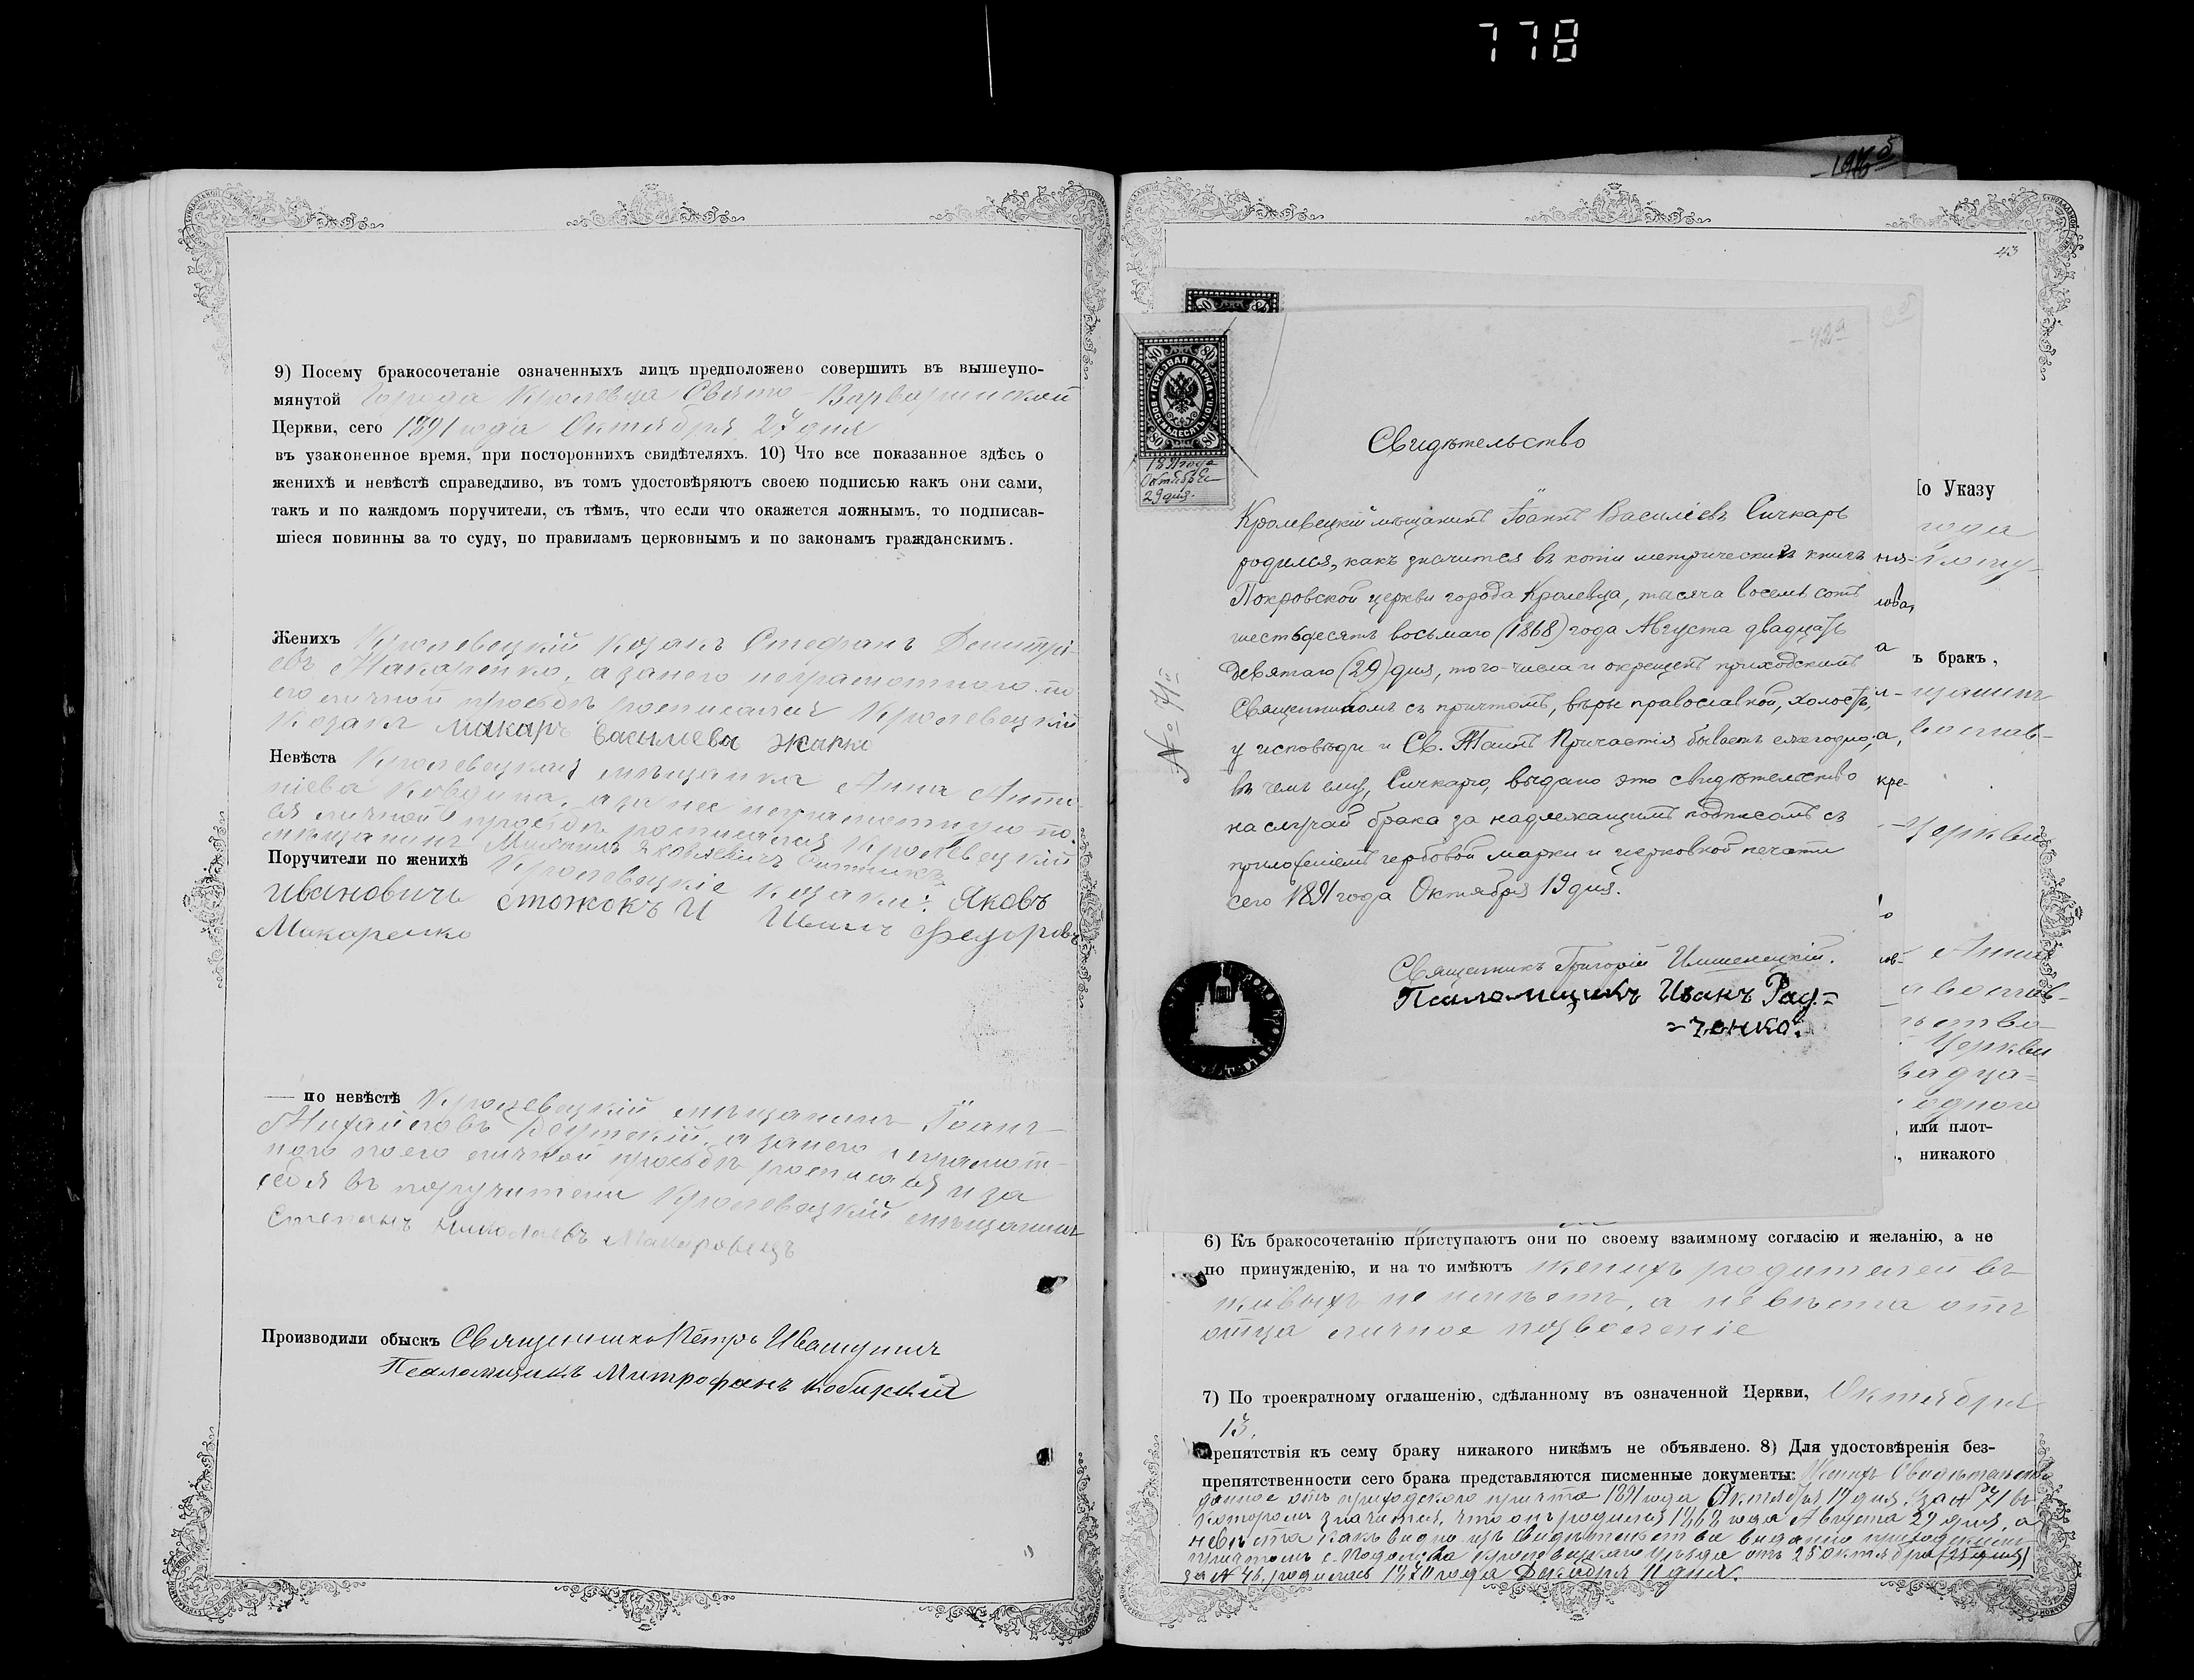 778
9) Посему бракосочетаніе означенныхъ лицъ предположено совершить въ вышеупо-
мянутой города Кролевца Свято-Варваринской
Церкви, сего 1891 года Октября 27 дня
въ узаконенное время, при постороннихъ свидѣтеляхъ. 10) Что все показанное здѣсь о
женихѣ и невѣстѣ справедливо, въ томъ удостовѣряютъ своею подписью какъ они сами,
такъ и по каждомъ поручители, съ тѣмъ, что если что окажется ложнымъ, то подписав-
шіеся повинны за то суду, по правиламъ церковнымъ и по законамъ гражданскимъ.
Женихъ Кролевецкій козакъ Стефанъ Димитрі-
евъ Макаренко, а за него неграмотного по
его личной просьбѣ росписался Кролевецкій
козакъ Макаръ Васылева Жарко
Невѣста Кролевецкая мѣщанка Анна Анто-
ніева, а за нее неграмотную по
ея личной просьбѣ росписался Кролевецкій
мѣщанинъ Михаилъ Яковлевичъ
Поручители по женихѣ Кролевецкіе козаки: Яковъ
Ивановичъ Стожокъ и Иванъ Федоровъ
Макаренко
по невѣстѣ Кролевецкій мѣщанинъ Іоанъ
Михайловъ, а за него неграмот-
ного по его личной просьбѣ росписался и за
себя въ поручители Кролевецкій мѣщанинъ
Степанъ Николаевъ Макаровецъ
Производили обыскъ Священникъ Петръ
Псаломщикъ Митрофанъ
43
42а
80 80
ГЕРБОВАЯ МАРКА
ВОСЕМЬДЕСЯТЪ КОП.
80 80
1891 года
Октября
29 дня.
№ 71й
Свидѣтельство
Кролевецкій мѣщанинъ Іоаннъ Василіевъ Сичкарь
родился, какъ значится въ копіи метрическихъ книгъ
Покровской церкви города Кролевца, тысяча восемь сотъ
шестьдесятъ восьмаго (1868) года Августа двадцать
девятаго (29) дня, того-числа и окрещенъ приходскимъ
Священникомъ съ причтомъ, вѣры православной, холостъ,
у исповѣди и Св. Таинъ Причастія бываетъ ежегодно,
въ чемъ ему, Сичкарю, выдано это свидѣтельство
на случай брака за надлежащимъ подписомъ съ
приложеніемъ гербовой марки и церковной печати
сего 1891 года Октября 19 дня.
Священникъ Григорій Имшенецкій.
Псаломщикъ Иванъ Рад-
ченко.
По Указу
года
ъ бракъ,
Церкви
Анна
Церкви
одного
или плот-
никакого
6) Къ бракосочетанію приступаютъ они по своему взаимному согласію и желанію, а не
по принужденію, и на то имѣютъ женихъ родителей въ
живыхъ не имѣетъ, а невѣста отъ
отца личное позволеніе
7) По троекратному оглашенію, сдѣланному въ означенной Церкви, Октября
13,
препятствія къ сему браку никакого никѣмъ не объявлено. 8) Для удостовѣренія без-
препятственности сего брака представляются писменные документы: Женихъ Свидѣтельство
данное отъ приходского причта 1891 года Октября 19 дня за № 71 въ
которомъ значится, что онъ родился 1868 года Августа 29 дня, а
невѣста какъ видно изъ свидѣтельства выданно приходскимъ
причтомъ с. Подолова Кролевецкаго уѣзда отъ 25 октября
за № 46, родилась 1870 года Декабря 11 дня.